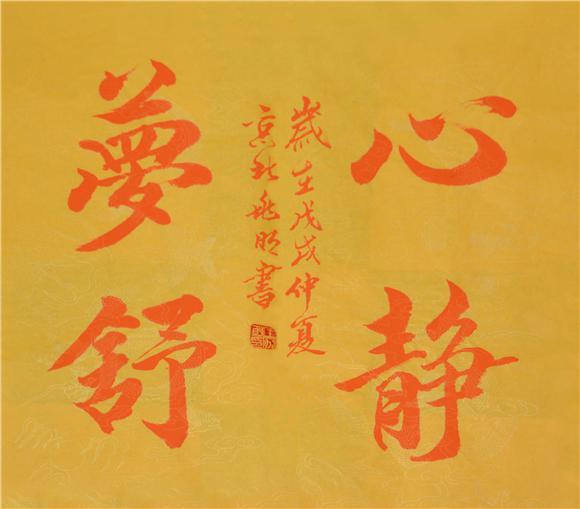 心静
夢舒
歲在戊戌仲夏
京北兆明書